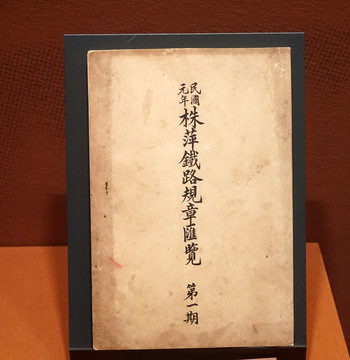 民國
元年
株萍鐵路規章匯覽 第一期